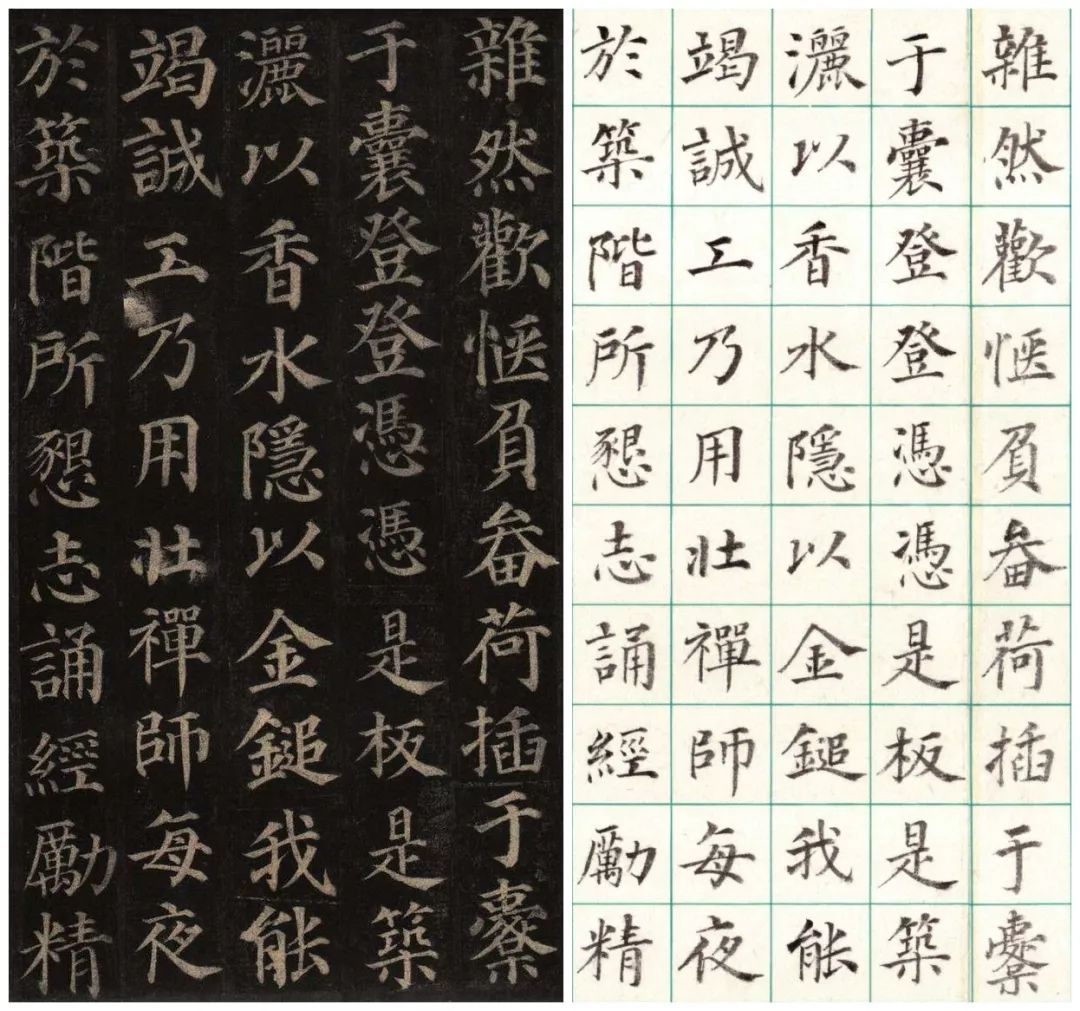 雜然歡愜負畚荷插于橐
于囊登登憑憑是板是築
灑以香水隱以金鎚我能
竭誠工乃用壯禪師每夜
於築階所懇志誦經勵精
雜然歡愜負畚荷插于橐
于囊登登憑憑是板是築
灑以香水隱以金鎚我能
竭誠工乃用壯禪師每夜
於築階所懇志誦經勵精